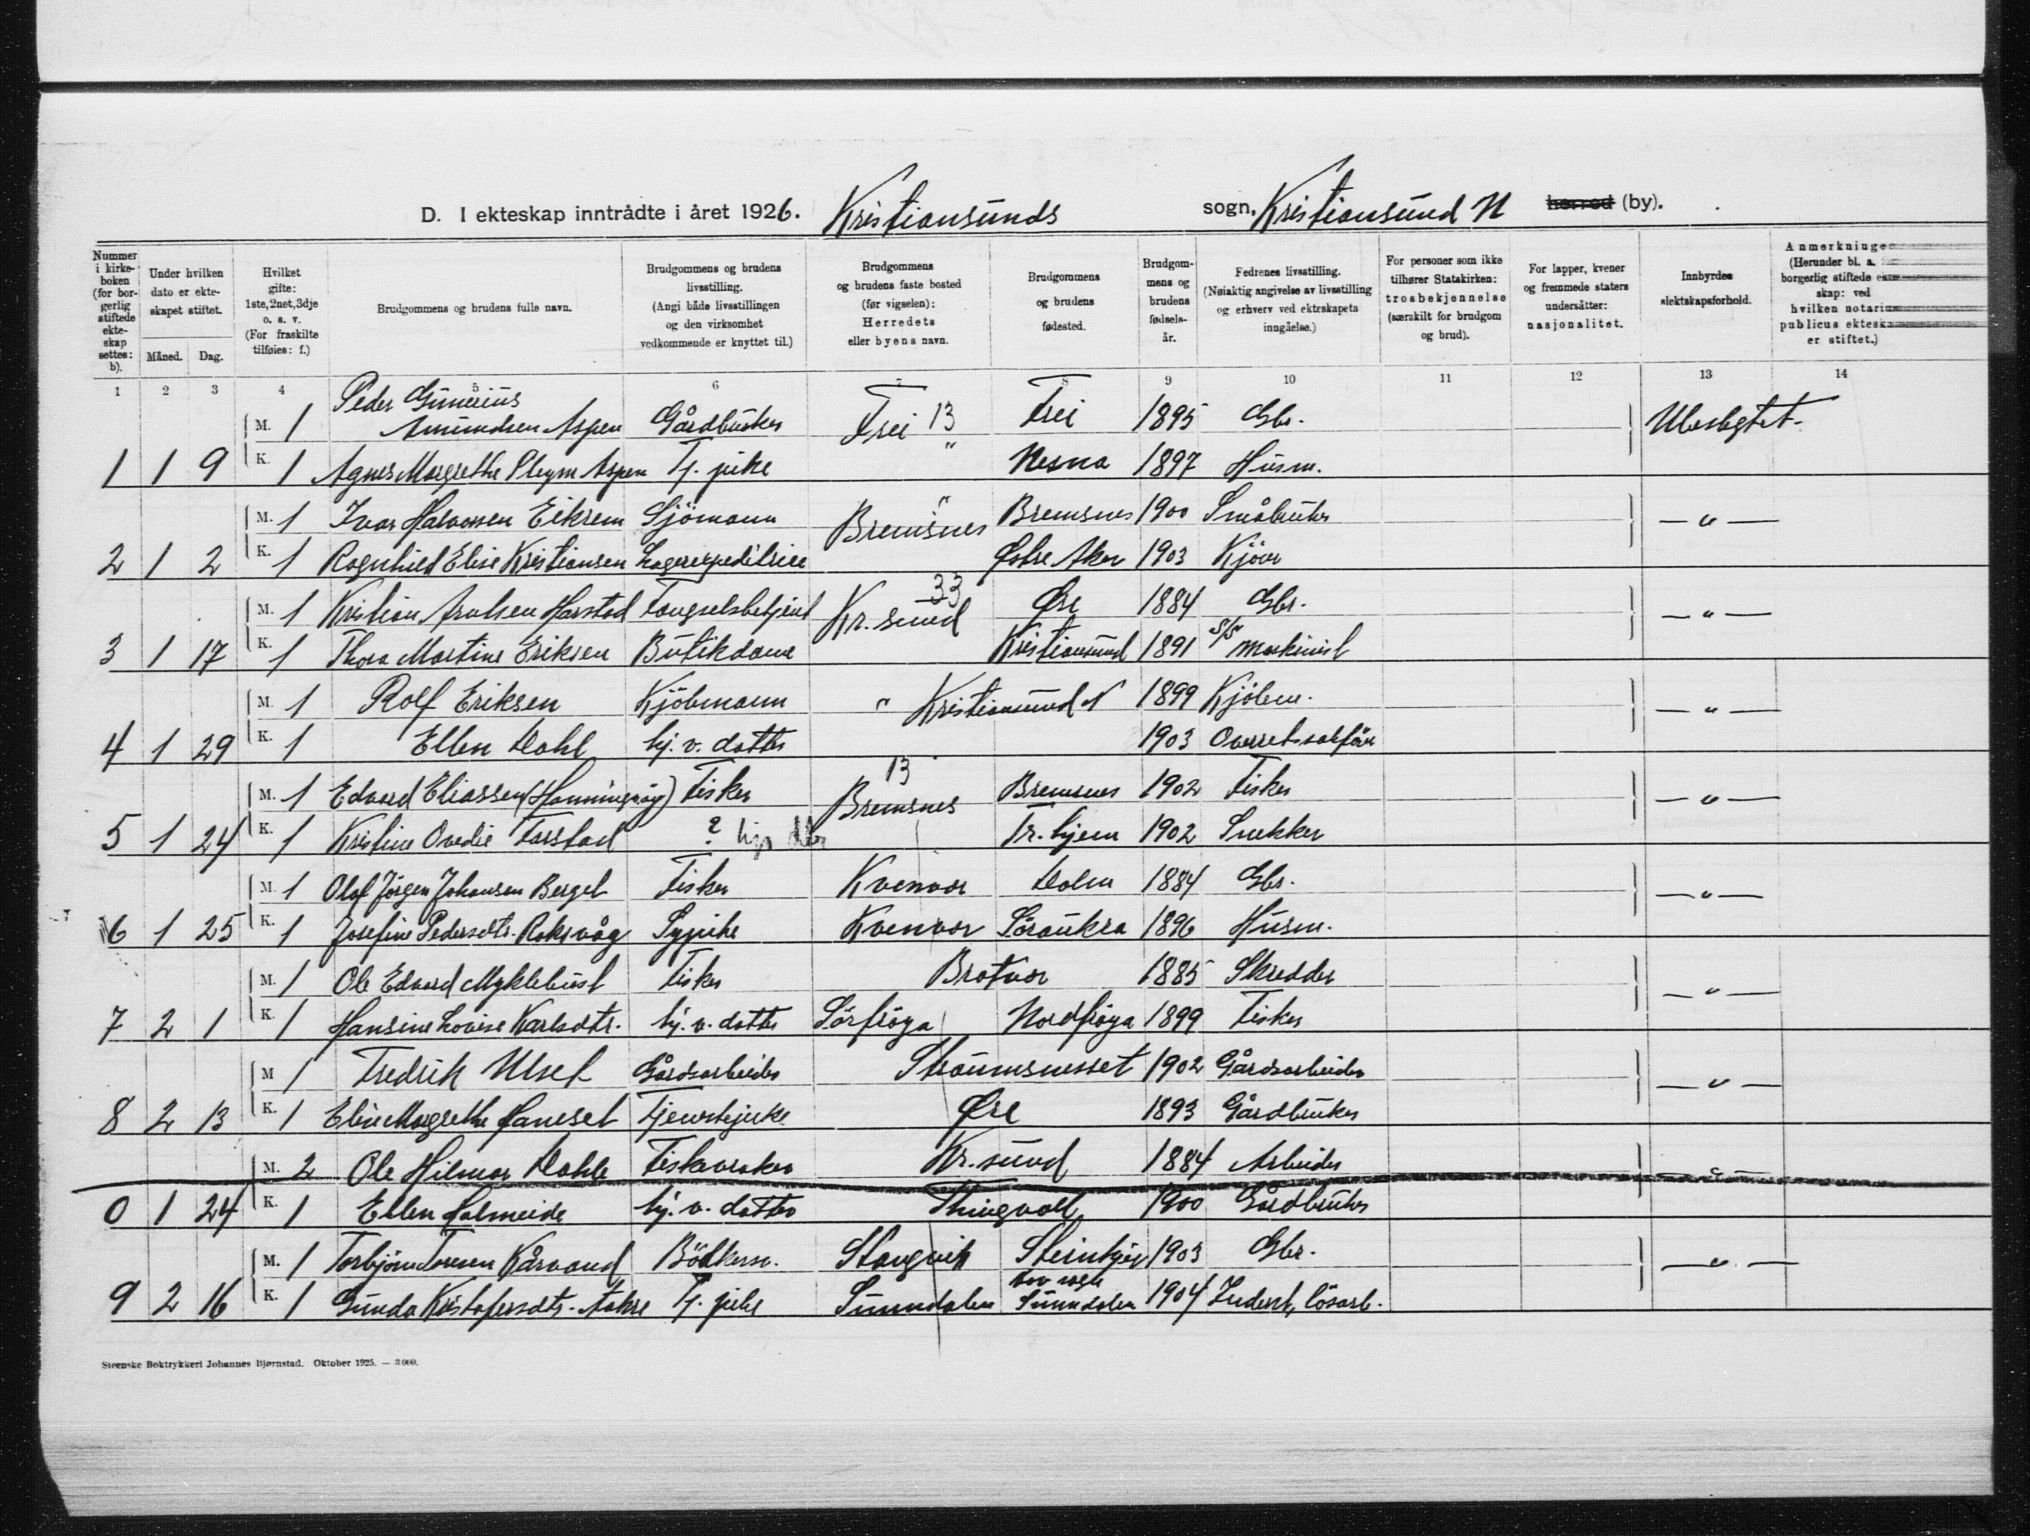 D. I ekteskap inntrådte i året 1926. Kristiansunds sogn, Kristiansund N herred (by).
Nummer i kirkeboken (for borgerlig stiftede ekteskap settes: b).
Under hvilken dato er ekteskapet stiftet.
Måned. Dag.
Hvilket gifte: 1ste, 2net, 3dje o. s. v. (For fraskilte tilføies: f.)
Brudgommens og brudens fulle navn.
Brudgommens og brudens livsstilling. (Angi både livsstillingen og den virksomhet vedkommende er knyttet til.)
Brudgommens og brudens faste bosted (før vigselen): Herredets eller byens navn.
Brudgommens og brudens fødested.
Brudgommens og brudens fødselsår.
Fedrenes livsstilling. (Nøiaktig angivelse av livsstilling og erhverv ved ekteskapets inngåelse.)
For personer som ikke tilhører Statskirken: trosbekjennelse (særskilt for brudgom og brud).
For lapper, kvener og fremmede staters undersåtter: nasjonalitet.
Innbyrdes slektskapsforhold.
Anmerkninger (Herunder bl. a. borgerlig stiftede ekteskap: ved hvilken notarius publicus ekteskapet er stiftet.)
1 2 3 4 5 6 7 8 9 10 11 12 13 14
M. 1 Peder Gunerius Amundsen Aspen Gårdbruker Frei 13 Frei 1895 Gbr. Ubeslegtet
1 1 9 K. 1 Agnes Margrethe Pleym Aspen Tj. pike " Nesna 1897 Husm.
M. 1 Ivar Halvorsen Eikrem Sjömann Bremsnes " Bremsnes 1900 Småbruker — " —
2 1 2 K. 1 Ragnhild Elise Kristiansen Lagerexpeditrice Østre Aker 1903 Kjörer
M. 1 Kristian Arntsen Harstad Fængselsbetjent Kr.sund 33 Øre 1884 Gbr. — " —
3 1 17 K. 1 Thora Martine Eriksen Butikdame Kristiansund 1891 S/S maskinist
M. 1 Rolf Eriksen Kjöbmann " Kristiansund N 1899 Kjöbm. — " —
4 1 29 K. 1 Ellen Dahl hj. v. datter 1903 Overretssakfører
M. 1 Edvard Eliassen (Honningsvåg) Fisker Bremsnes 13 Bremsnes 1902 Fisker — " —
5 1 24 K. 1 Kristine Ovedie Farstad ? Tr.hjem 1902 Snekker
M. 1 Olaf Jörgen Johansen Berget Fisker Kvenvær Dolm 1884 Gbr. — " —
6 1 25 K. 1 Josefine Pedersdtr. Roksvåg Sypike Kvenvær Söraukra 1896 Husm.
M. 1 Ole Edvard Myklebust Fisker Bratvær 1885 Skredder — " —
7 2 1 K. 1 Hansine Lovise Karlsdtr. hj. v. datter Sörfröya Nordfröya 1899 Fisker
M 1 Fredrik Ulset Gårdsarbeider Straumsnesset 1902 Gårdsarbeider — " —
8 2 13 K. 1 Elin Margrethe Haneset Tjenestepike Øre 1893 Gårdbruker
M. 2 Ole Hilmar Dahle Fiskevraker Kr.sund 1884 Arbeider — " —
0 1 24 K. 1 Ellen Halmeide hj. v. datter Thingvoll 1900 Gårdbruker
M. 1 Torbjörn Toresen Kårvand Bödkersv. Stangvik Steinkjer 1903 Gbr. — " —
9 2 16 K. 1 Gunda Kristofersdtr. Aakre Tj. pike Sunndalen Sunndalen 1904 Inderst, lösarb.
Steenske Boktrykkeri Johannes Bjørnstad. Oktober 1925. — 3000.